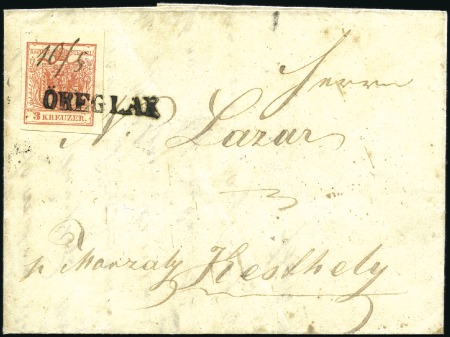 10/5
ÖREGLAK
3 KREUZER.
Herrn
N. Lazar
p. Marzaly Kesthely